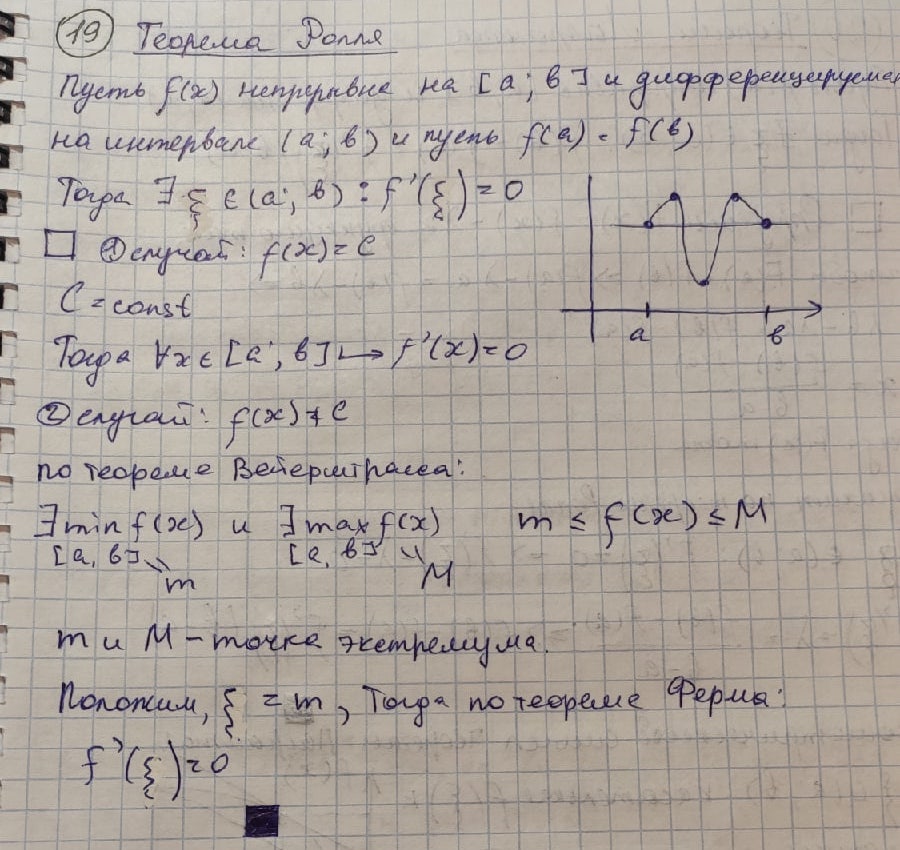 19 Теорема Ролля
Пусть f(x) непрерывна на [a; в] и дифференцируема
на интервале (a; в) и пусть f(a) = f(в)
Тогда ∃ ξ ∈ (a; в) : f'(ξ) = 0
□ ① случай: f(x) = C
C = const
Тогда ∀x ∈ [a; в] ↦ f'(x) = 0
a в
② случай: f(x) ≠ C
по теореме Вейерштрасса:
∃ min f(x) и ∃ max f(x) m ≤ f(x) ≤ M
[a, в] [a, в]
= m = M
m и M – точка экстремума.
Положим, ξ = m, Тогда по теореме Ферма:
f'(ξ) = 0
■